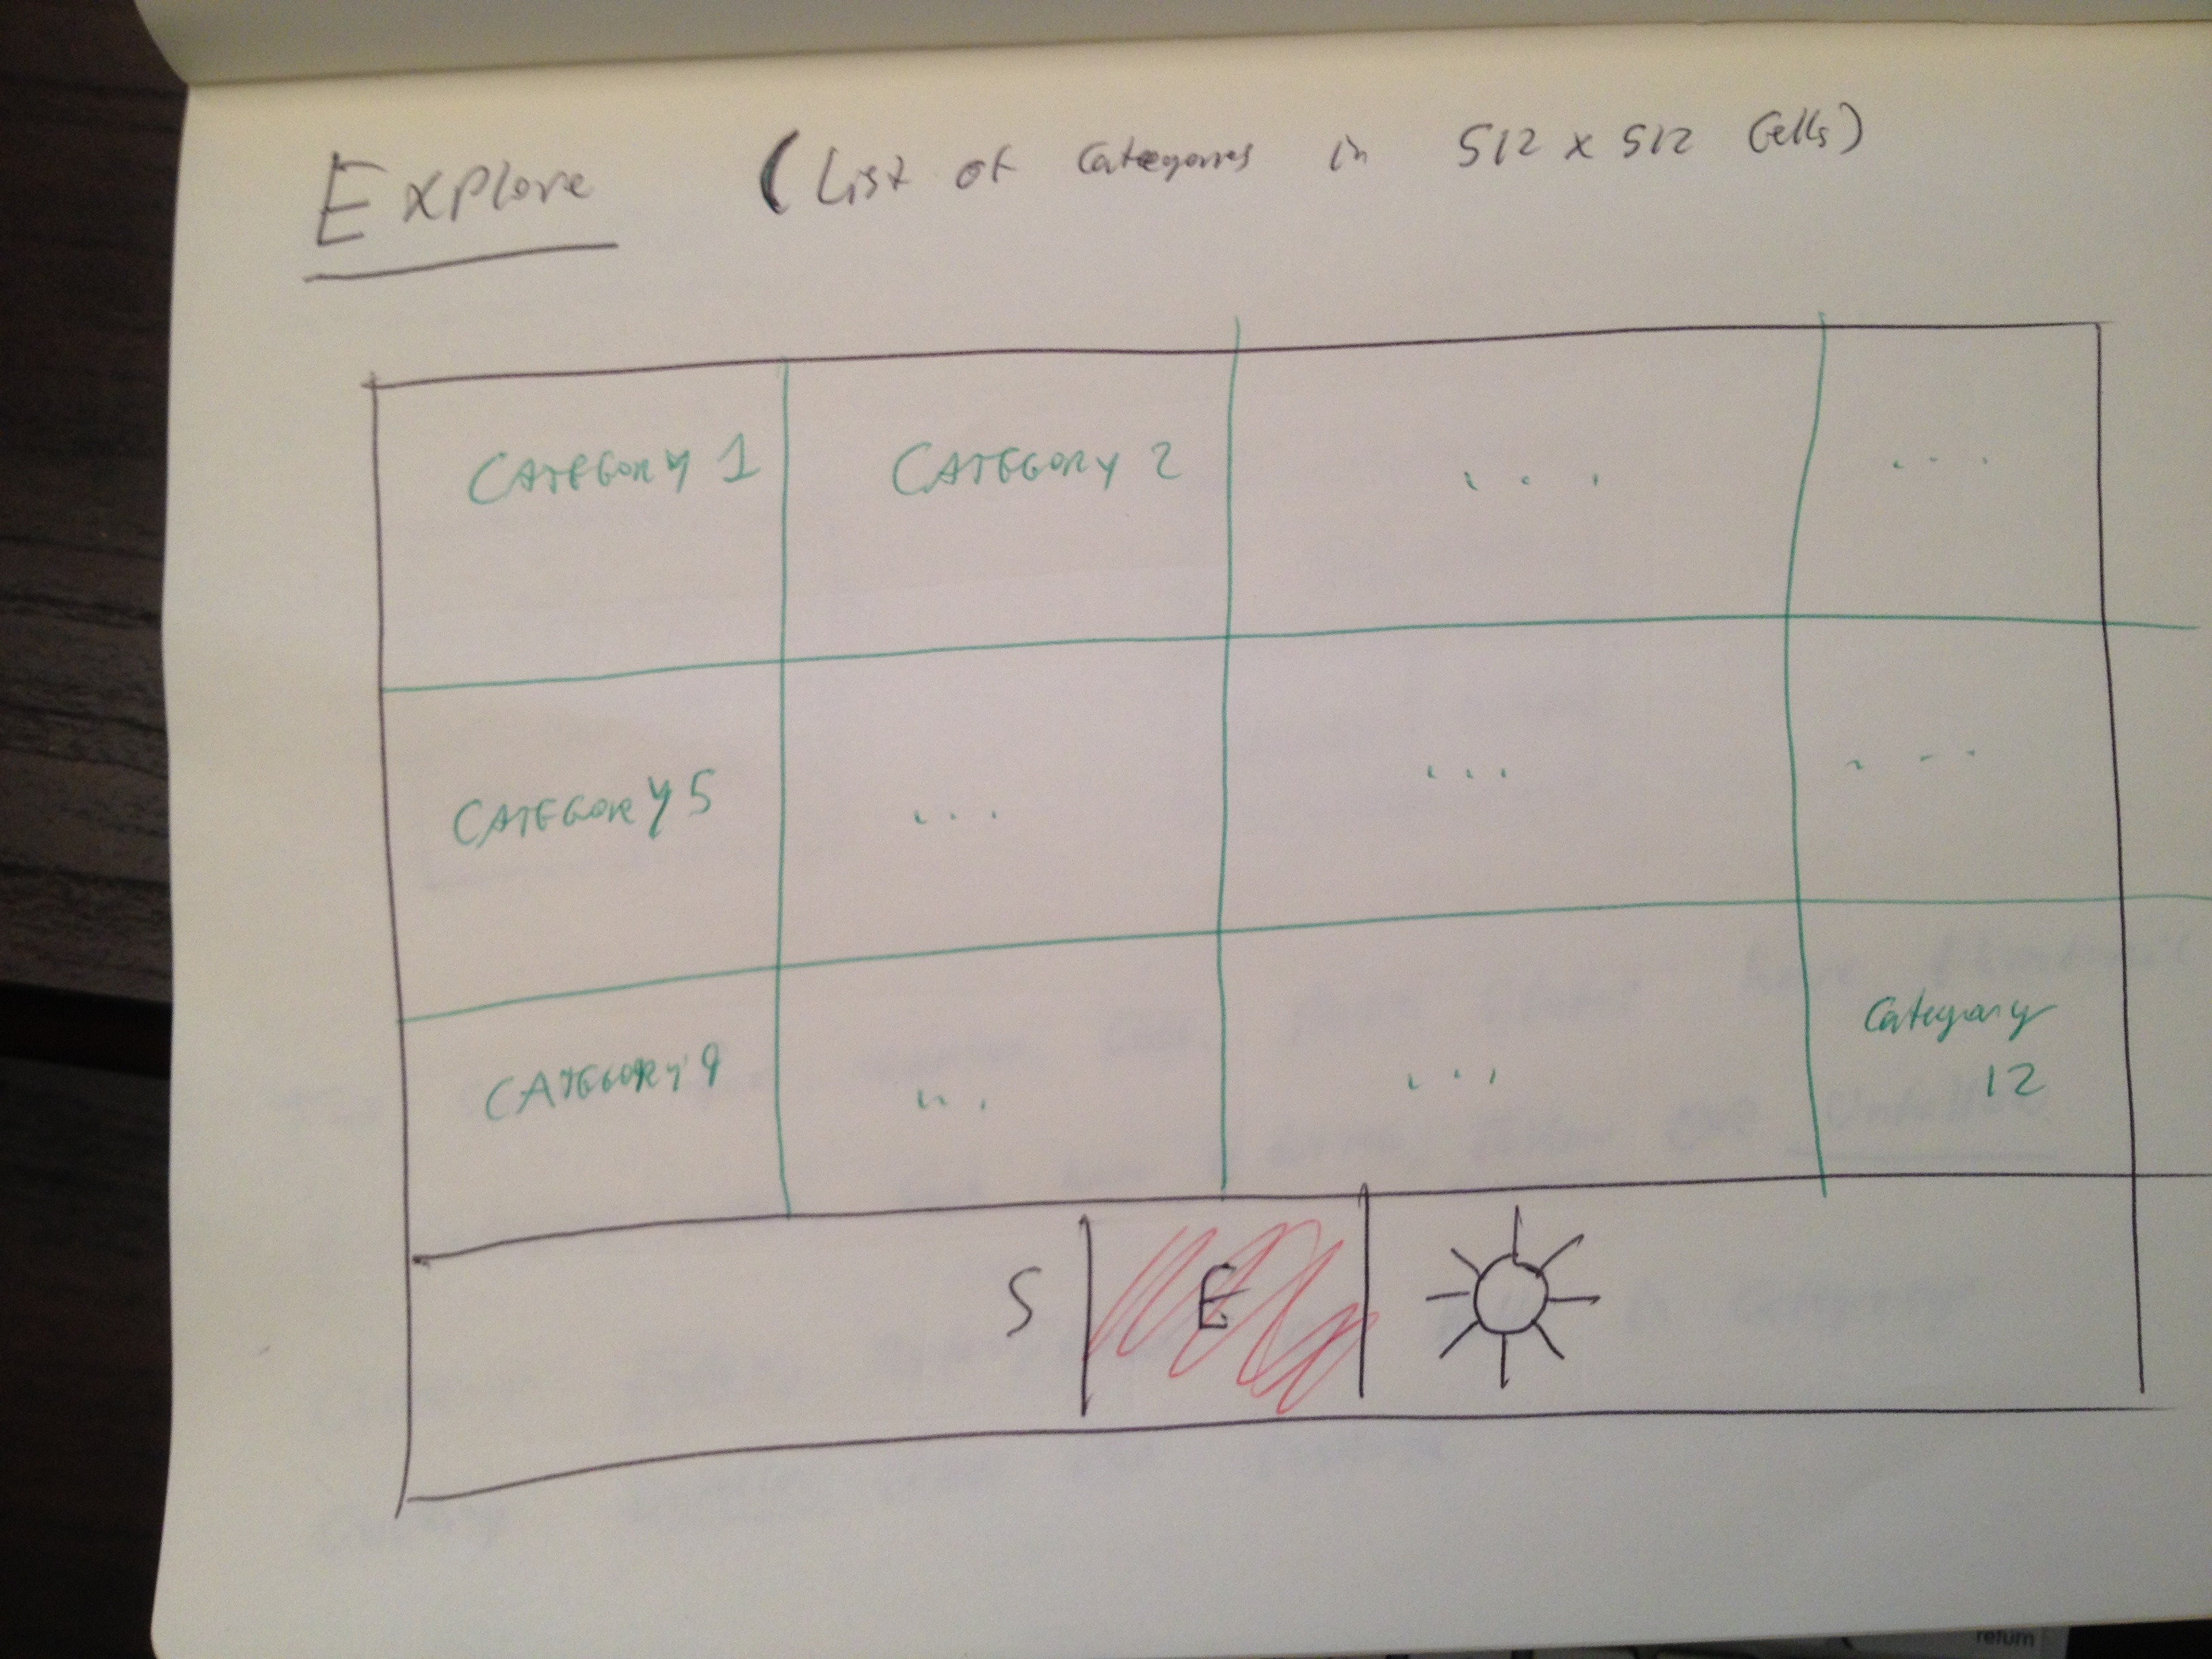 Explore (List of Categories in 512 x 512 Cells)
CATEGORY 1 CATEGORY 2 ... ...
CATEGORY 5 ... ... ...
CATEGORY 9 ... ... Category
12
S E
return